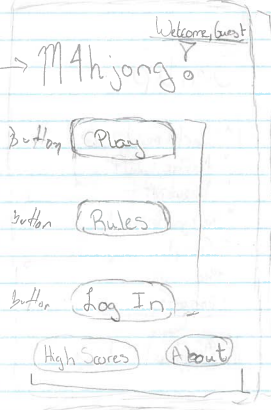 Welcome, Guest
M4hjong!
Button Play
Button Rules
Button Log In
High Scores About